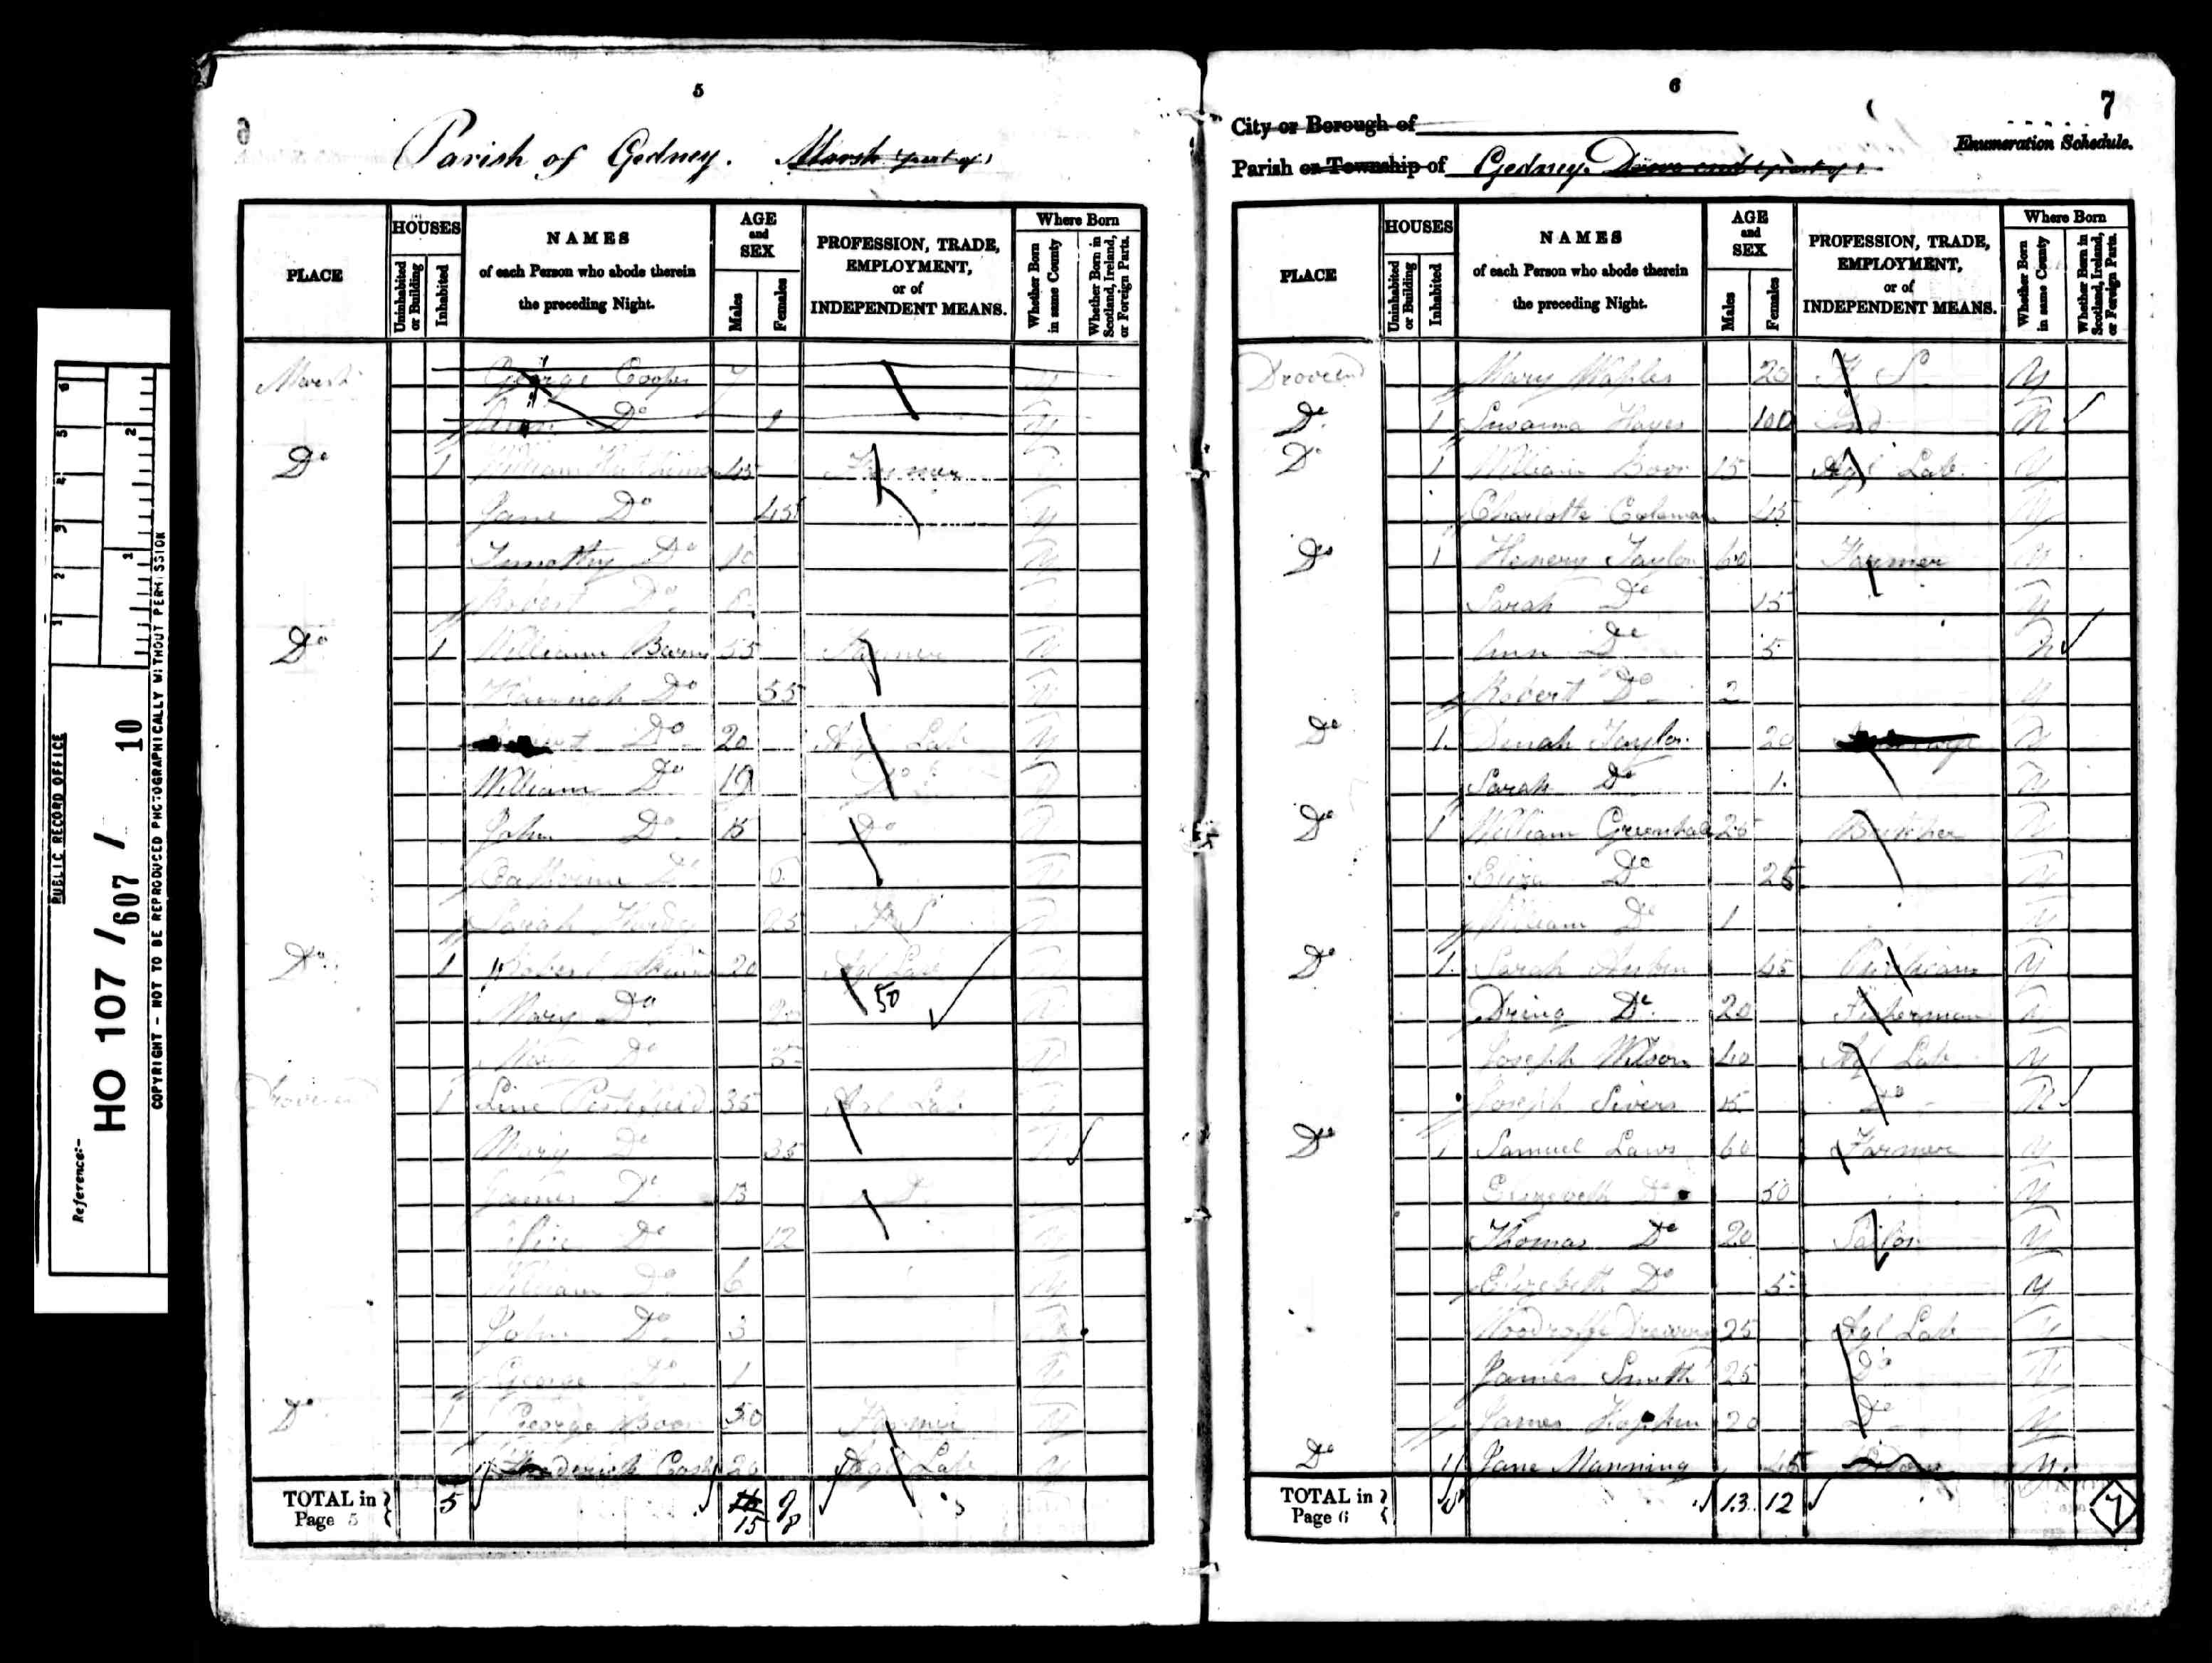 5
Parish of Gedney. Marsh (part of)
PLACE
HOUSES
Uninhabited or Building
Inhabited
NAMES
of each Person who abode therein
the preceding Night.
AGE
and
SEX
Males
Females
PROFESSION, TRADE,
EMPLOYMENT,
or of
INDEPENDENT MEANS.
Where Born
Whether Born in same County
Whether Born in Scotland, Ireland, or Foreign Parts.
Marsh George Cooper 7 y
Do
Do 1 William 45 Farmer
Jane Do 45 y
Timothy Do 10 y
Robert Do
Do 1 William 55 Farmer
Hannah Do 55
Do 20 Ag Lab y
William Do 19 Do
John Do 15 Do
Catherine Do
Sarah 25 F S
Do 1 Robert 20 Agl Lab
Mary Do 20
50
Do 5
Drovend 1 35 Agl Lab
Mary Do 35
James Do 13
Do 12
William Do 6
John Do 3
George Do 1
Do 1 George Boor 50 Farmer y
Frederick 20 Agl Lab y
TOTAL in Page 5 5 15 8
6
7
City or Borough of
Enumeration Schedule.
Parish or Township of Gedney. Drove end (part of)
PLACE
HOUSES
Uninhabited or Building
Inhabited
NAMES
of each Person who abode therein
the preceding Night.
AGE
and
SEX
Males
Females
PROFESSION, TRADE,
EMPLOYMENT,
or of
INDEPENDENT MEANS.
Where Born
Whether Born in same County
Whether Born in Scotland, Ireland, or Foreign Parts.
Drovend Mary Maples 20 F S y
Do 1 Susanna Hayes 100 Ind N
Do 1 William Boor 15 Agl Lab y
Charlotte Coleman 45 y
Do 1 Henery Taylor 60 Farmer y
Sarah Do 15 y
Ann Do 5 N
Robert Do 2 y
Do 1 Dinah Taylor 20 y
Sarah Do 1 y
Do 1 William 25 Butcher y
Eliza Do 25 y
William Do 1 y
Do 1 Sarah 45 Publican y
Dring Do 20 Fisherman y
Joseph Wilson 40 Agl Lab y
Joseph Sivers 15 Do N
Do 1 Samuel Laws 60 Farmer y
Do 50 y
Thomas Do 20 Tailor y
Elizebeth Do 5 y
25 Agl Lab y
James Smith 25 Do y
James 20 Do y
Do 1 Jane Manning 45 y
TOTAL in Page 6 13 12
7
Reference:-
PUBLIC RECORD OFFICE
HO 107 / 607 / 10
COPYRIGHT - NOT TO BE REPRODUCED PHOTOGRAPHICALLY WITHOUT PERMISSION
1 2 3 4 5 6
1 2